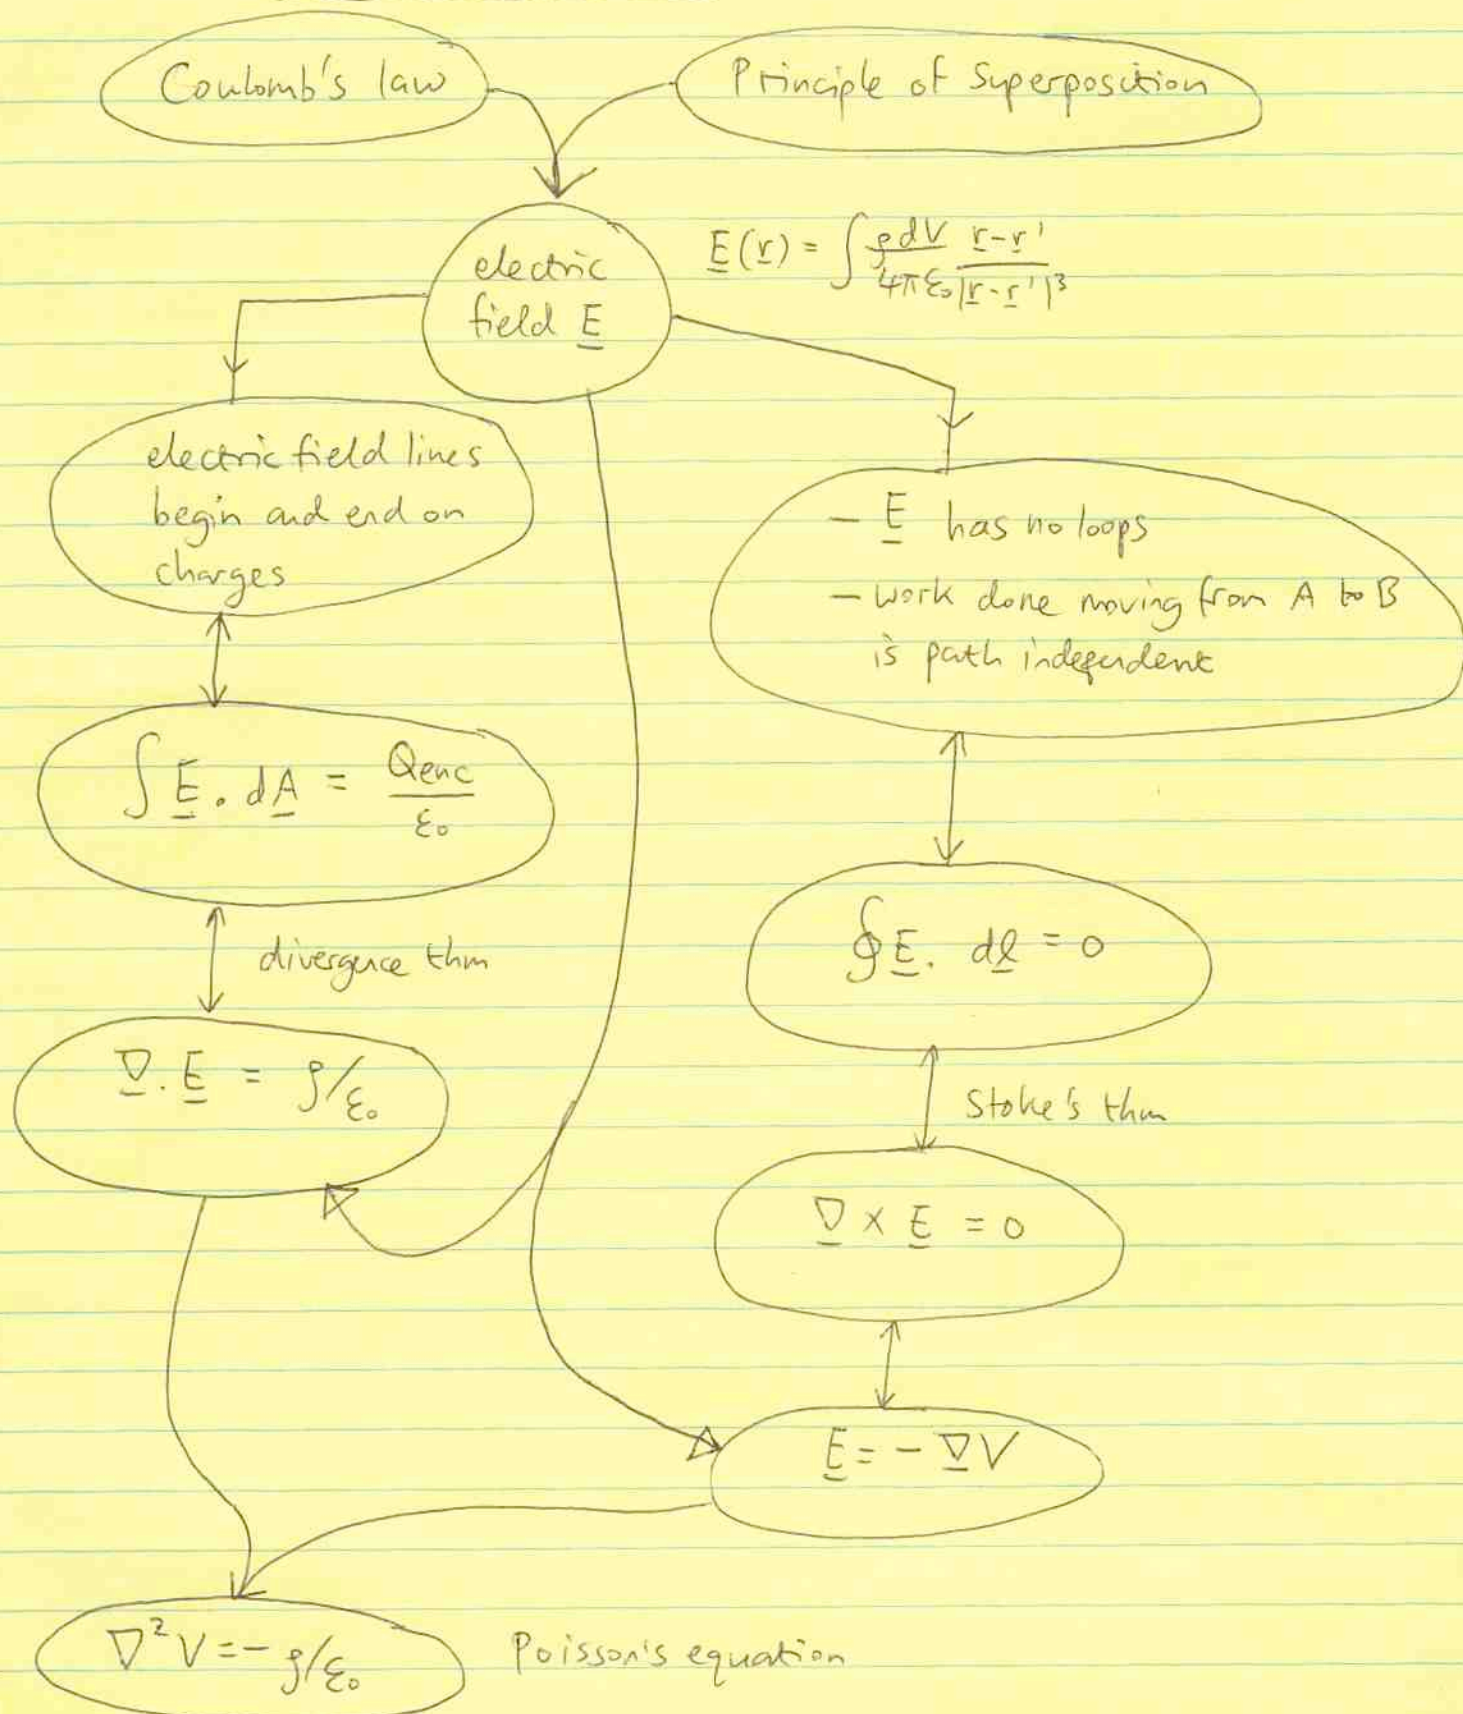 Coulomb's law
Principle of Superposition
electric
field E̲
E̲(r̲) = ∫ ρdV/4πε₀ r̲-r̲'/|r̲-r̲'|³
electric field lines
begin and end on
charges
– E̲ has no loops
– work done moving from A to B
is path independent
∫ E̲ . dA̲ = Qenc/ε₀
∮ E̲ . dl̲ = 0
divergence thm
∇̲ . E̲ = ρ/ε₀
Stoke's thm
∇̲ × E̲ = 0
E̲ = - ∇̲V
∇²V = - ρ/ε₀
Poisson's equation